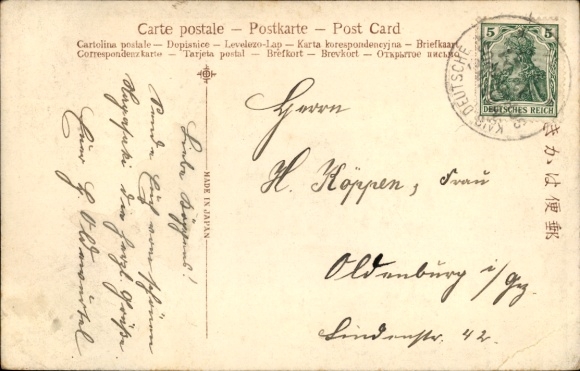 Carte postale – Postkarte – Post Card
Cartolina postale – Dopisnice – Levelezo-Lap – Karta korespondencyjna – Briefkaart
Correspondenzkarte – Tarjeta postal – Brefkort – Brevkort – Открытое письмо
5 5
DEUTSCHES REICH
KAIS. DEUTSCHE
きかは便郵
MADE IN JAPAN
Liebe Köppens!
Sende Euch vom schönen
Nagasaki die herzl. Grüße.
Euer G. Oldewurtel
Herrn
H. Köppen, Frau
Oldenburg i/Gr.
Lindenstr. 42.